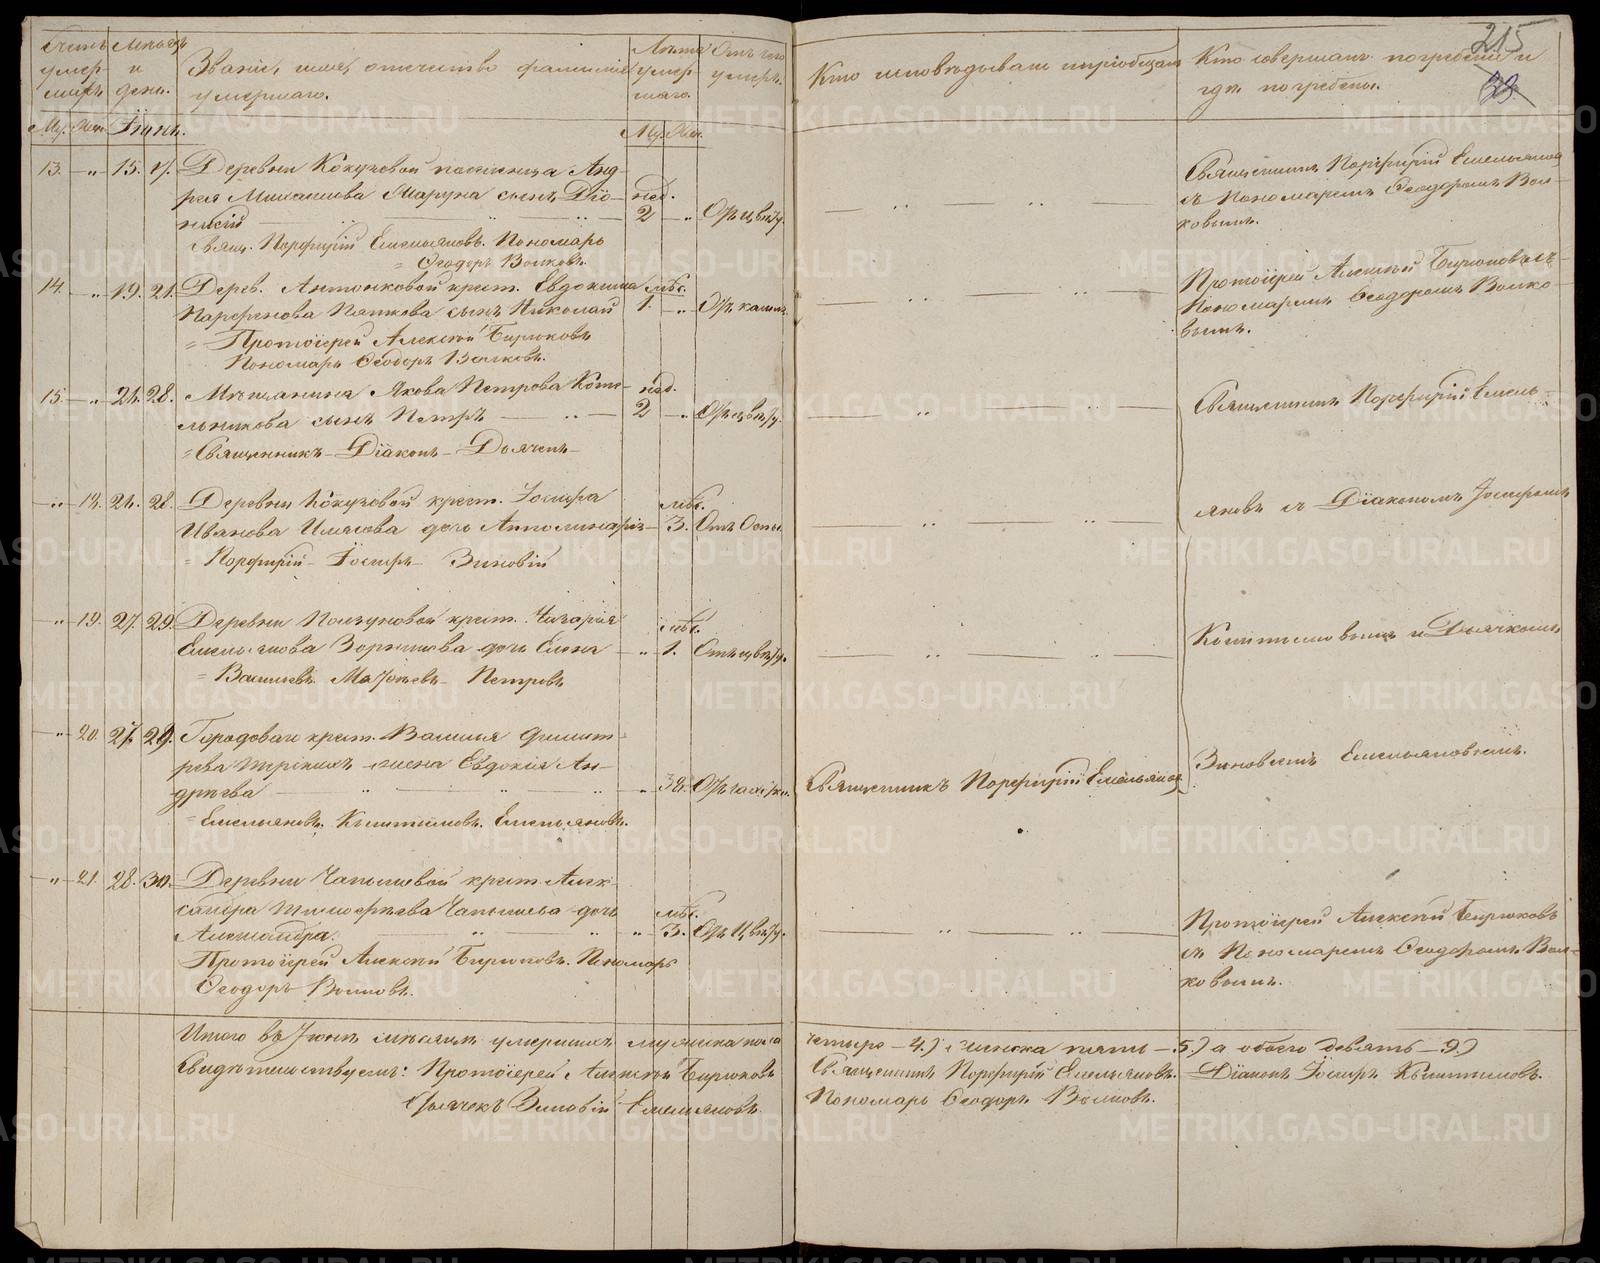 215
33.
Счетъ умер-шихъ
Мѣсяцъ и день.
Званіе, имя, отчество фамилія умершаго.
Лѣта умер-шаго.
Отъ чего умеръ.
Кто исповѣдывалъ и пріобщалъ
Кто совершалъ погребеніе и гдѣ погребены.
Му. Жен. Іюнь.
Му. Жен.
13. — „ — 15. 17. Деревни Кокузовой поселенца Анд-
рея сынъ Діо- нед.
нисій 2 — „ Отъ
Свящ. Порфирій Емельяновъ. Пономарь
= Ѳеодоръ Волковъ.
Священникъ Порфирій Емельяновъ
съ Пономаремъ Ѳеодоромъ Вол-
ковымъ.
14. — „ 19. 21. Дерев. Антонковой крест. Евдокима мѣс.
сынъ Николай 1. — „ Отъ кашля.
= Протоіерей Алексѣй Бирюковъ
Пономарь Ѳеодоръ Волковъ.
Протоіерей Алексѣй Бирюковъ съ
Пономаремъ Ѳеодоромъ Волко-
вымъ.
15. — „ 24. 28. Мѣщанина Якова Петрова Коте- нед.
льникова сынъ Петръ 2 — „
= Священникъ — Діаконъ — Дьячекъ —
Священникъ Порфирій Емель-
— „ — 18. 24. 28. Деревни Кокузовой крест. Іосифа мѣс.
Иванова дочь Апполинарія — 3. Отъ Оспы
= Порфирій — Іосифъ — Зиновій
яновъ съ Діакономъ Іосифомъ
— „ — 19. 27. 29. Деревни крест. мѣс.
Емельянова дочь Елена — „ 1.
= Васильевъ Матѳеевъ — Петровъ
Кыштымовымъ и Дьячкомъ
— „ — 20. 27. 29. Городовая крест. Василья Димит-
рева жена Евдокія Ан-
дреева — „ 34.
= Емельяновъ. Кыштымовъ. Емельяновъ.
Священникъ Порфирій Емельяновъ
Зиновіемъ Емельяновымъ.
— „ — 21. 28. 30. Деревни Чапышевой крест. Алек-
сандра Тимофеева Чапышева дочь мѣс.
Александра. „ 3.
Протоіерей Алексѣй Бирюковъ. Пономарь
Ѳеодоръ Волковъ.
Протоіерей Алексѣй Бирюковъ
съ Пономаремъ Ѳеодоромъ Вол-
ковымъ.
Итого въ Іюнѣ мѣсяцѣ умершихъ мужска пола четыре — 4.) женска пять — 5.) а обоего девять — 9.)
Свидѣтельствуемъ: Протоіерей Алексѣй Бирюковъ Священникъ Порфирій Емельяновъ. Діаконъ Іосифъ Кыштымовъ.
Дьячекъ Зиновій Емельяновъ. Пономарь Ѳеодоръ Волковъ.
METRIKI.GASO-URAL.RU